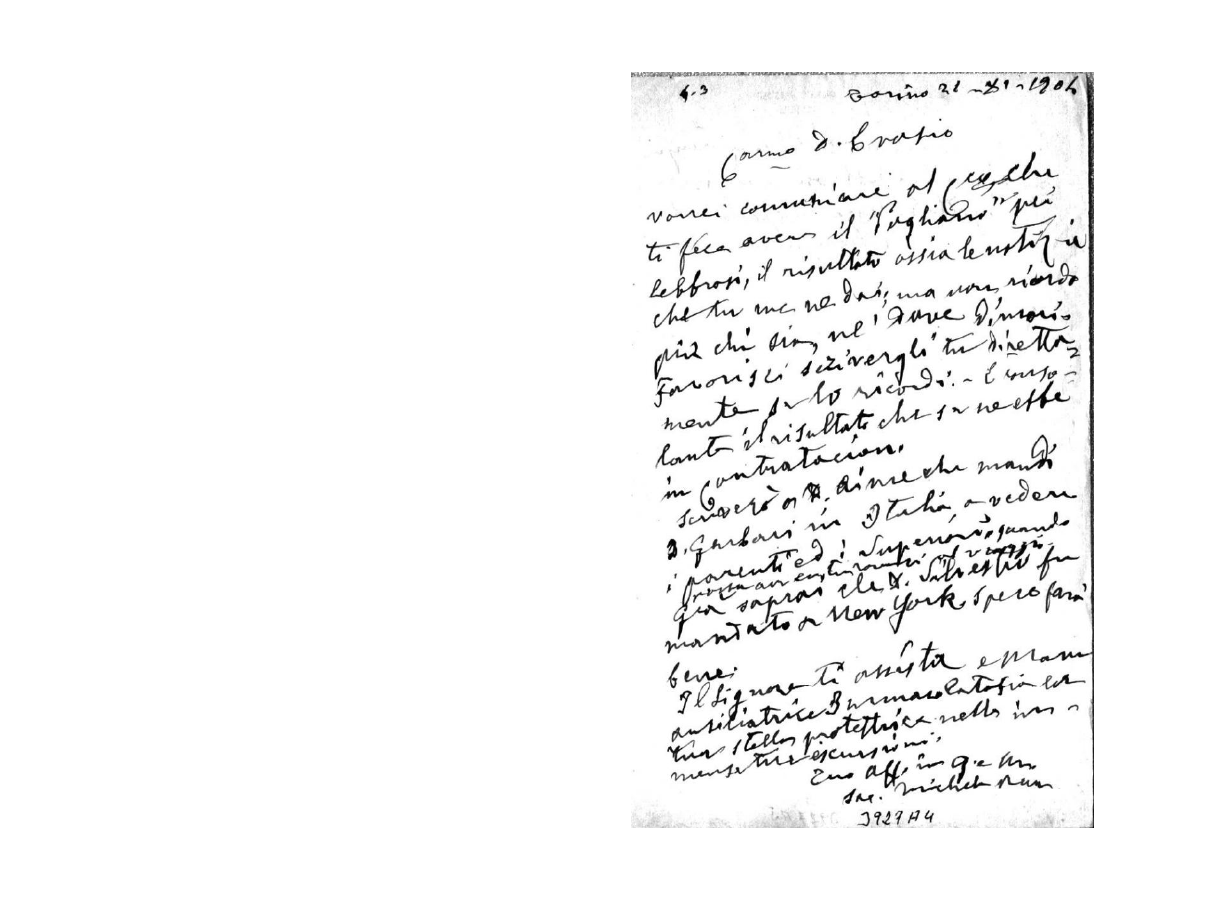 4.3 Torino 21-XI-1904
Carmo D. Evasio
vorrei comunicare al che
ti fece avere il "Pagliano" pei
lebbrosi, il risultato ossia le notizie
che tu me ne dai, ma non ricordo
più chi sia, nè dove dimori.
Favorisci scrivergli tu diretta=
mente se lo ricordi. - È conso=
lante il risultato che se ne ebbe
in Contratacion.
Scriverò a D. Aime che mandi
D. Garbari in Italia, a vedere
i parenti ed i Superiori, quando
possa aver il viaggio.
Già saprai che D. Silvestro fu
mandato a New York. Spero farà
bene.
Il Signore ti assista e Maria
Ausiliatrice Immacolata sia la
tua stella protettrice nelle im-
mense tue escursioni.
Tuo aff. in G. e M.
Sac. Michele Rua
3929A4